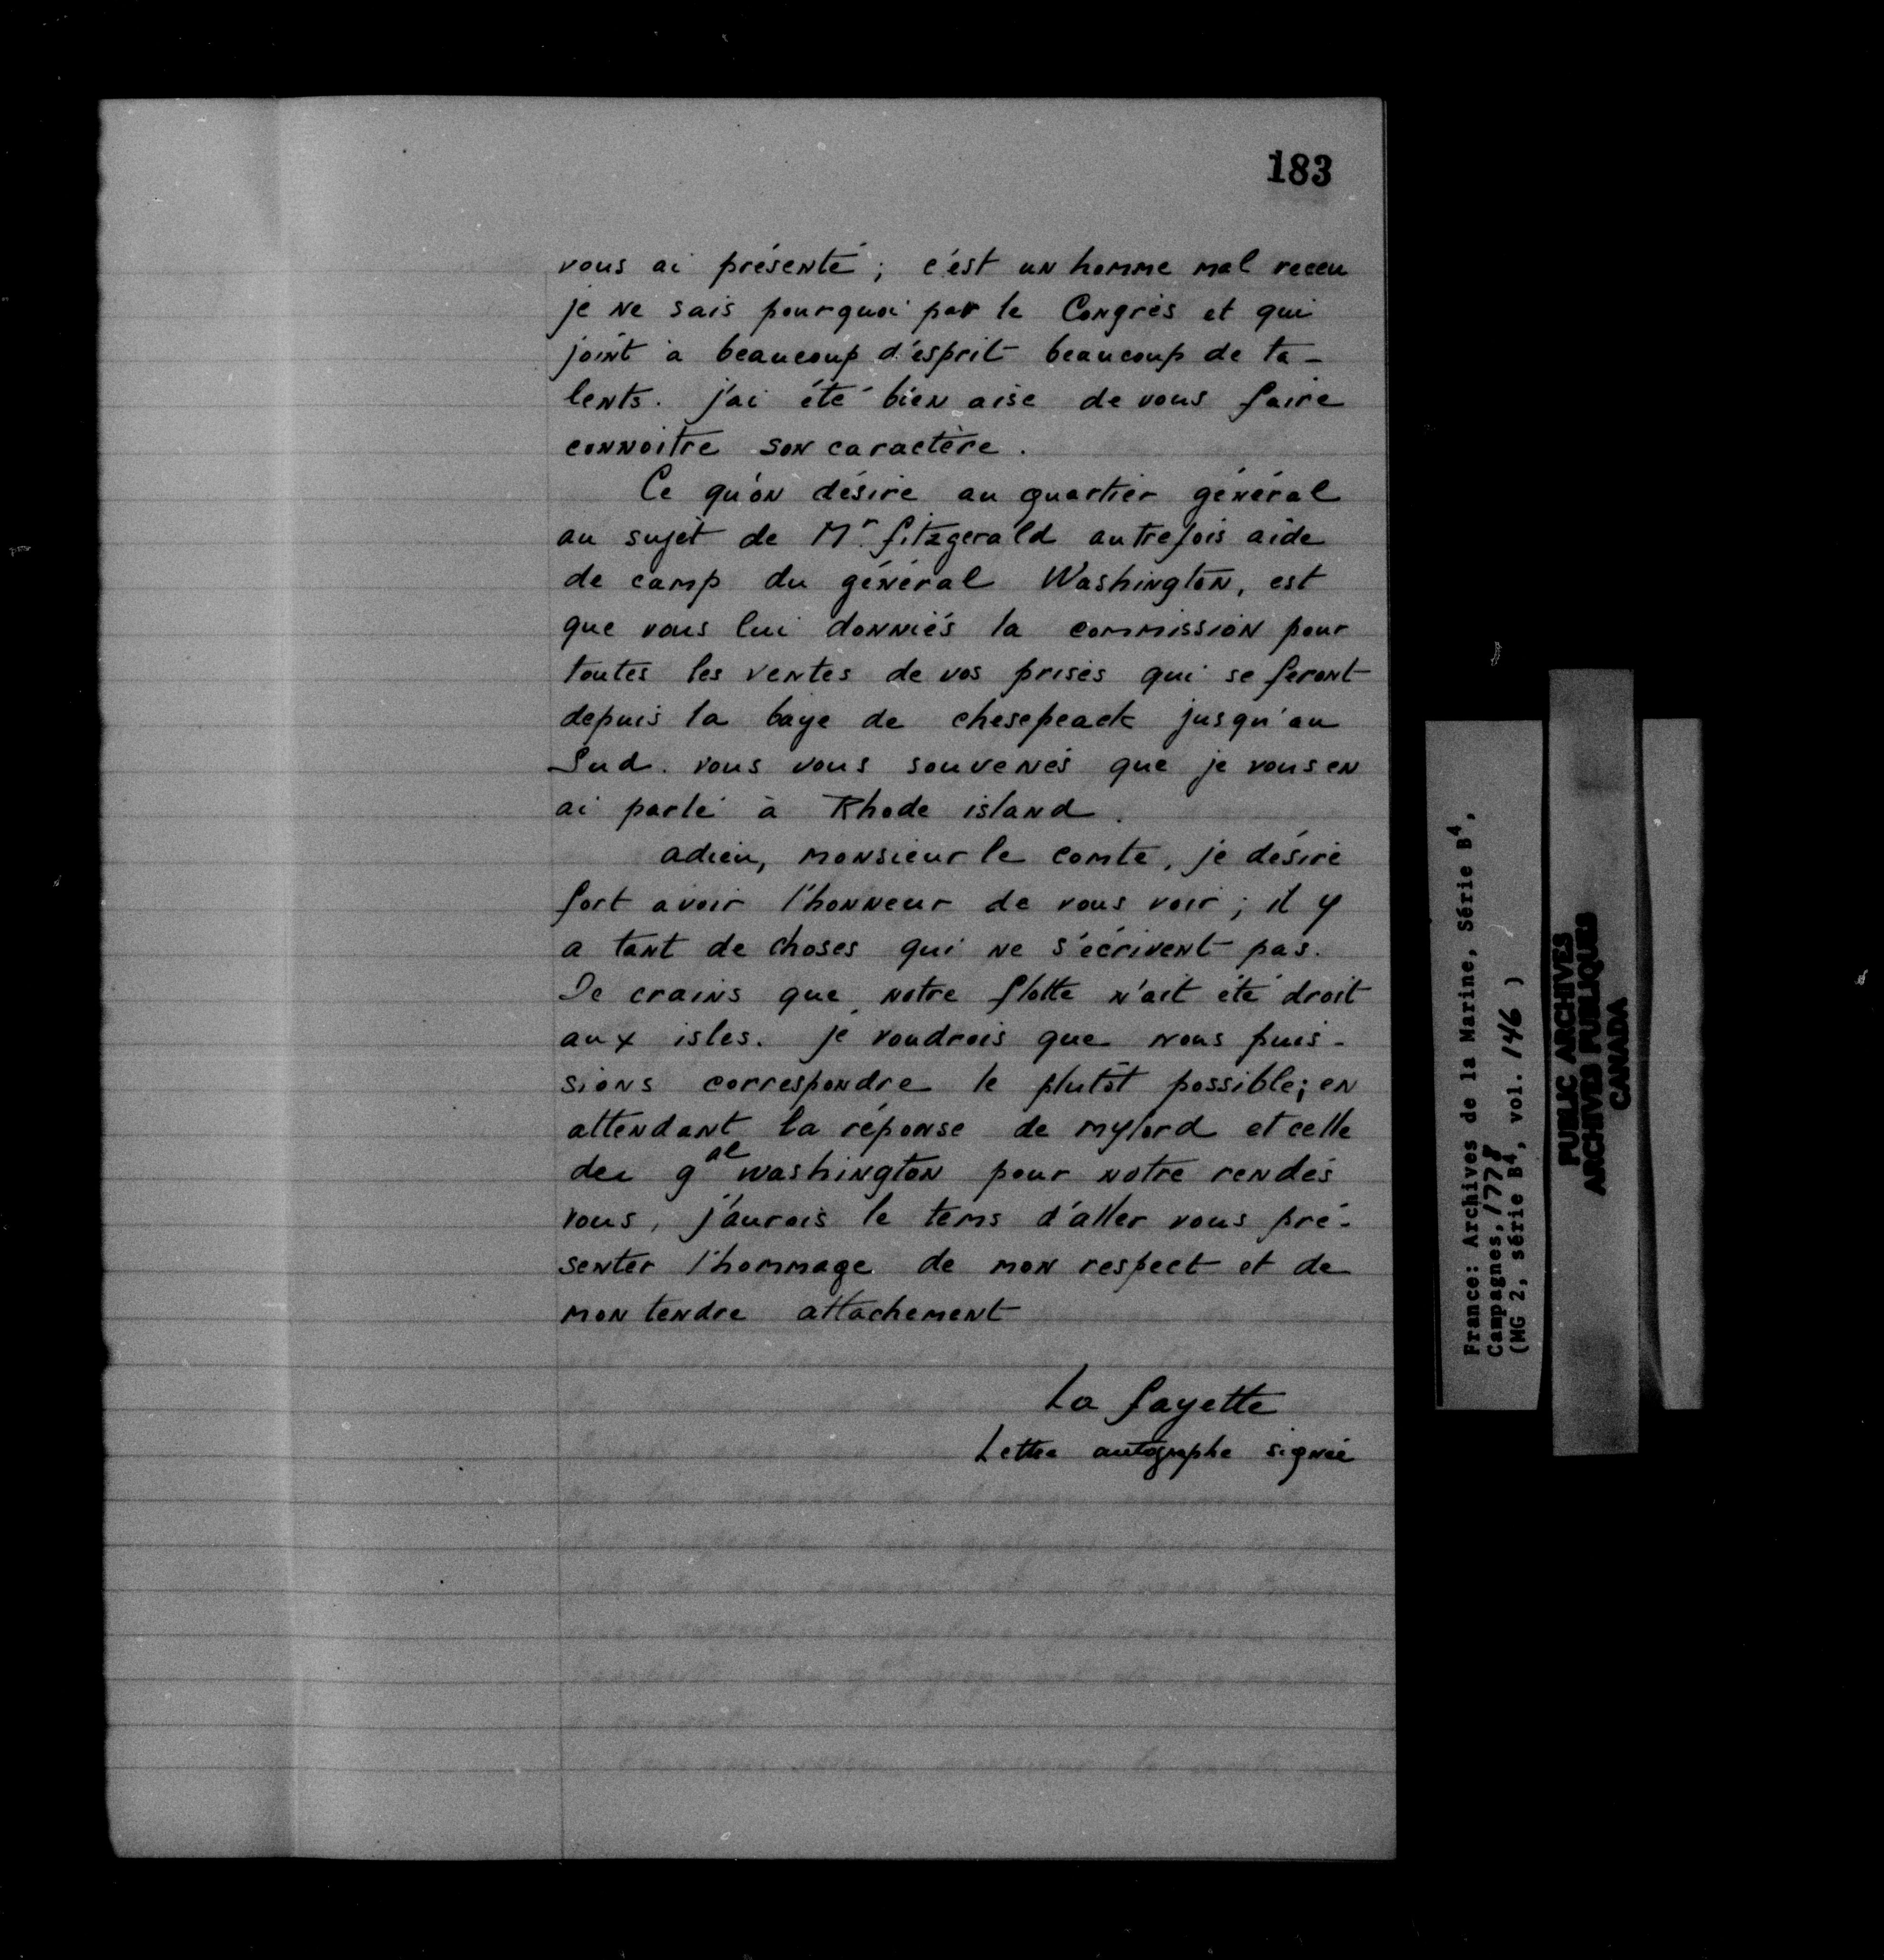 183
vous ai présenté ; c'est un homme mal receu
je ne sais pourquoi par le Congrès et qui
joint à beaucoup d'esprit beaucoup de ta-
lents. j'ai été bien aise de vous faire
connoitre son caractère.
Ce qu'on désire au quartier général
au sujet de Mr. fitzgerald autrefois aide
de camp du général Washington, est
que vous lui donniés la commission pour
toutes les ventes de vos prises qui se feront
depuis la baye de chesepeack jusqu'au
Sud. vous vous souvenés que je vous en
ai parlé à Rhode island.
adieu, monsieur le comte, je désire
fort avoir l'honneur de vous voir ; il y
a tant de choses qui ne s'écrivent pas.
Je crains que notre flotte n'ait été droit
aux isles. je voudrois que nous puis-
sions correspondre le plutôt possible; en
attendant la réponse de mylord et celle
du gal washington pour notre rendés
vous, j'aurois le tems d'aller vous pré-
senter l'hommage de mon respect et de
mon tendre attachement
La fayette
Lettre autographe signée
France: Archives de la Marine, Série B4,
Campagnes, 1778
(MG 2, série B4, vol. 146 )
PUBLIC ARCHIVES
ARCHIVES PUBLIQUES
CANADA